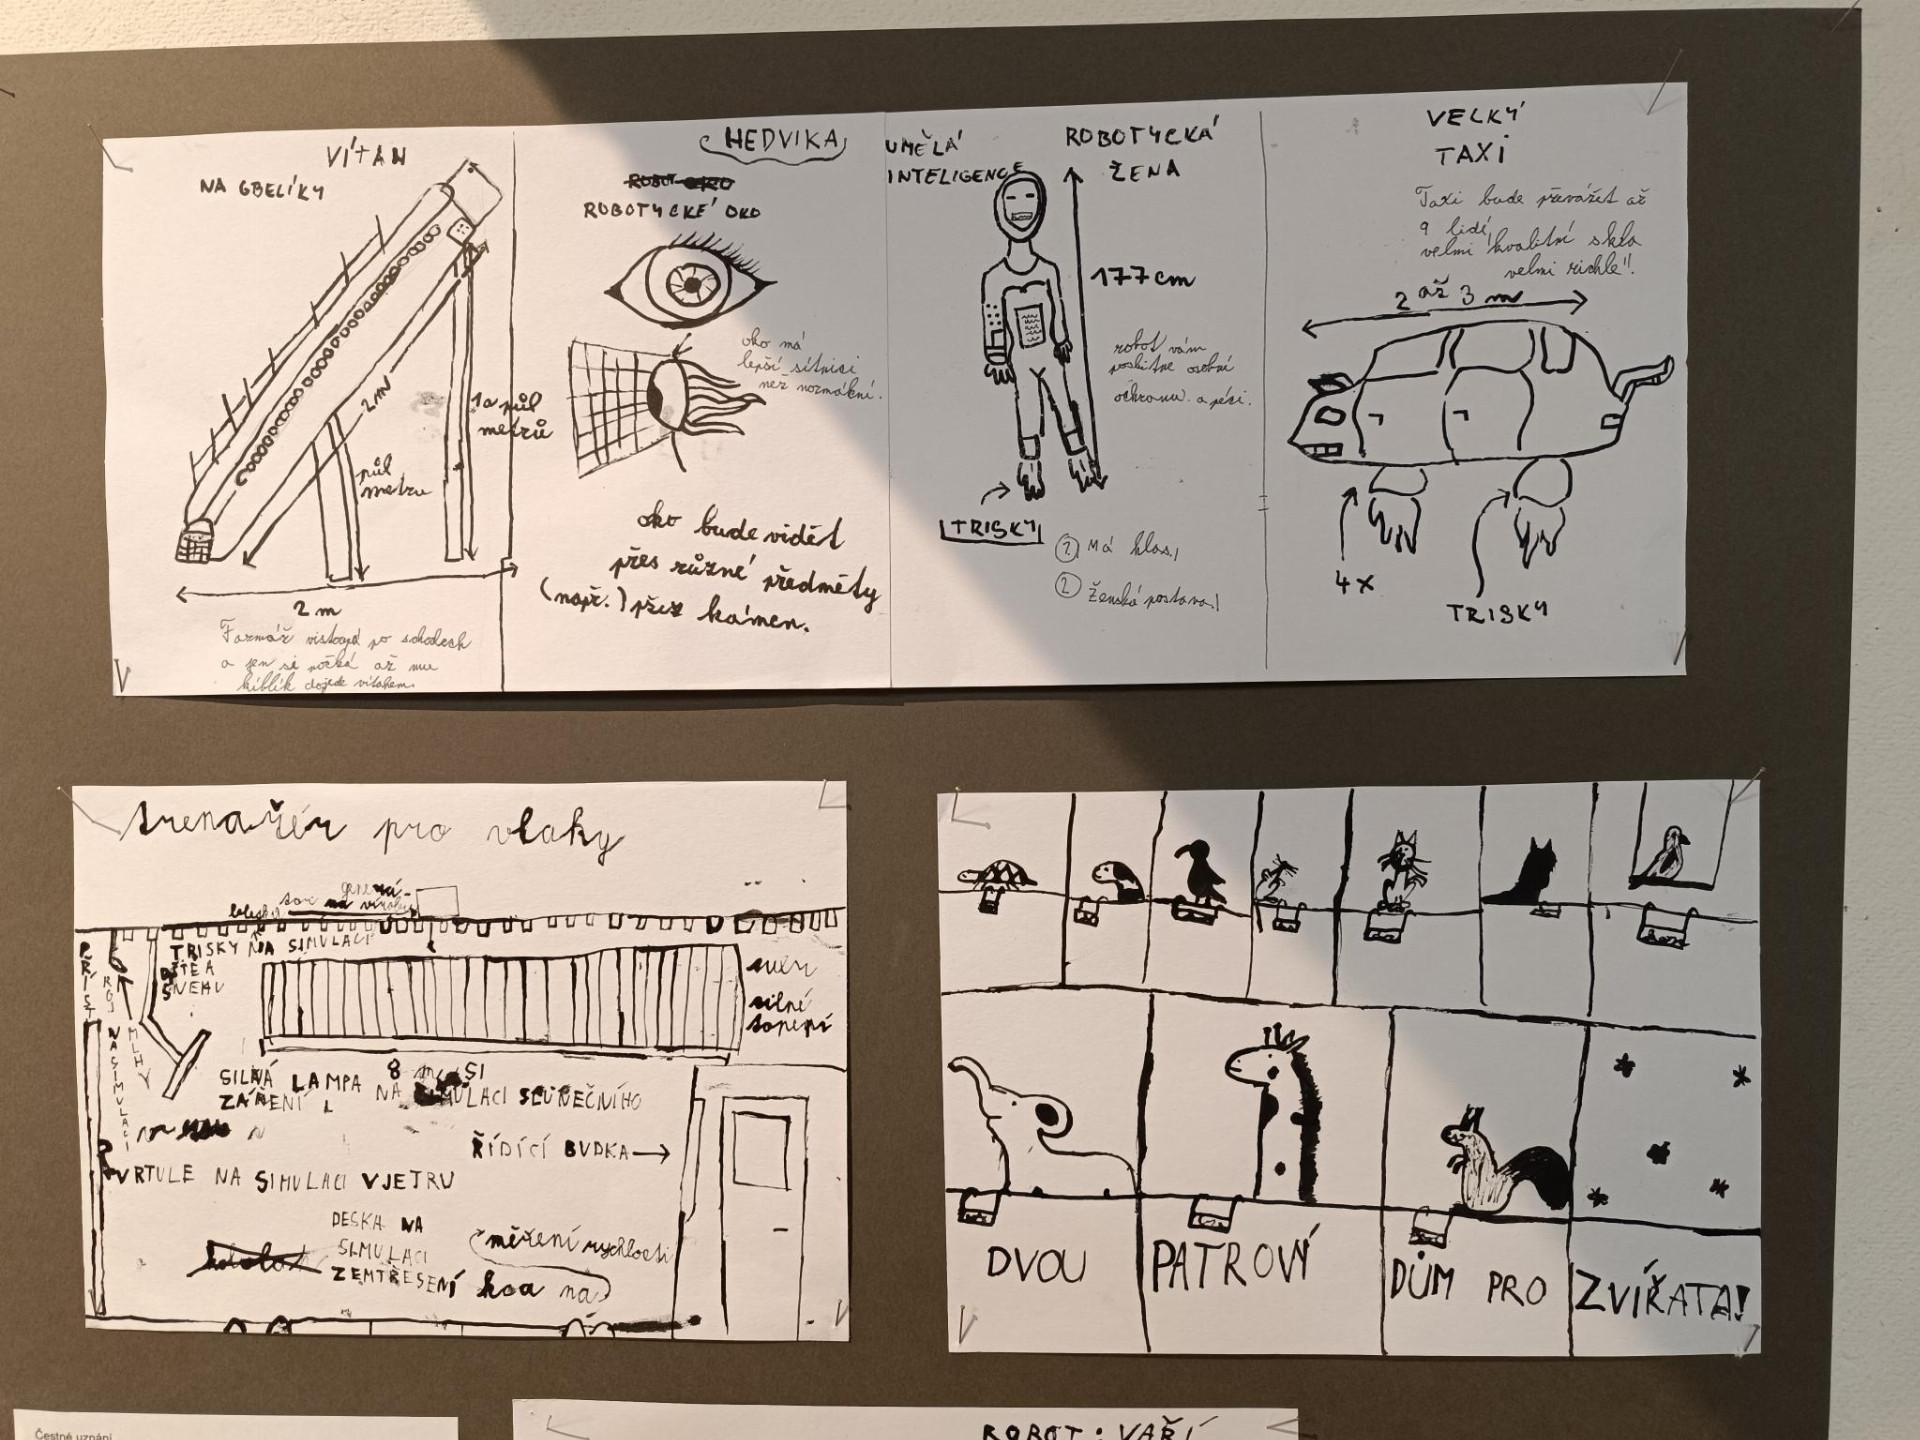 VÍTAH
NA GBELÍKY
2M
1a půl
metrů
půl
metru
2 m
Farmář vistoupá po schodech
a jen si počká až mu
kiblík dojede vítahem.
HEDVIKA
ROBOTYCKÉ OKO
oko má
lepší sítnici
než normální.
oko bude vidět
přes různé předměty
(např.) přez kámen.
UMĚLÁ
INTELIGENCE
ROBOTYCKÁ
ŽENA
177cm
robot vám
poskitne osobní
ochranu a péči.
TRISKY
1 Má hlas!
2 Ženská postava!
VELKÝ
TAXI
Taxi bude převážet až
9 lidí,
velmi kvalitní skla
velmi richlé!!
2 až 3 m
4x
TRISKY
trenažér pro vlaky
TRISKY NA SIMULACI
DŠTĚ A
SNĚHU
NA SIMULACI
MLHY
silné
topení
8 m
SILNÁ LAMPA NA SIMULACI SLUNEČNÍHO
ZÁŘENÍ
ŘÍDÍCÍ BUDKA
VRTULE NA SIMULACI VJETRU
DESKA NA
SIMULACI
ZEMTŘESENÍ
měření rychlosti
DVOU PATROVÝ DŮM PRO ZVÍŘATA!
Čestné uznání
ROBOT: VAŘÍ